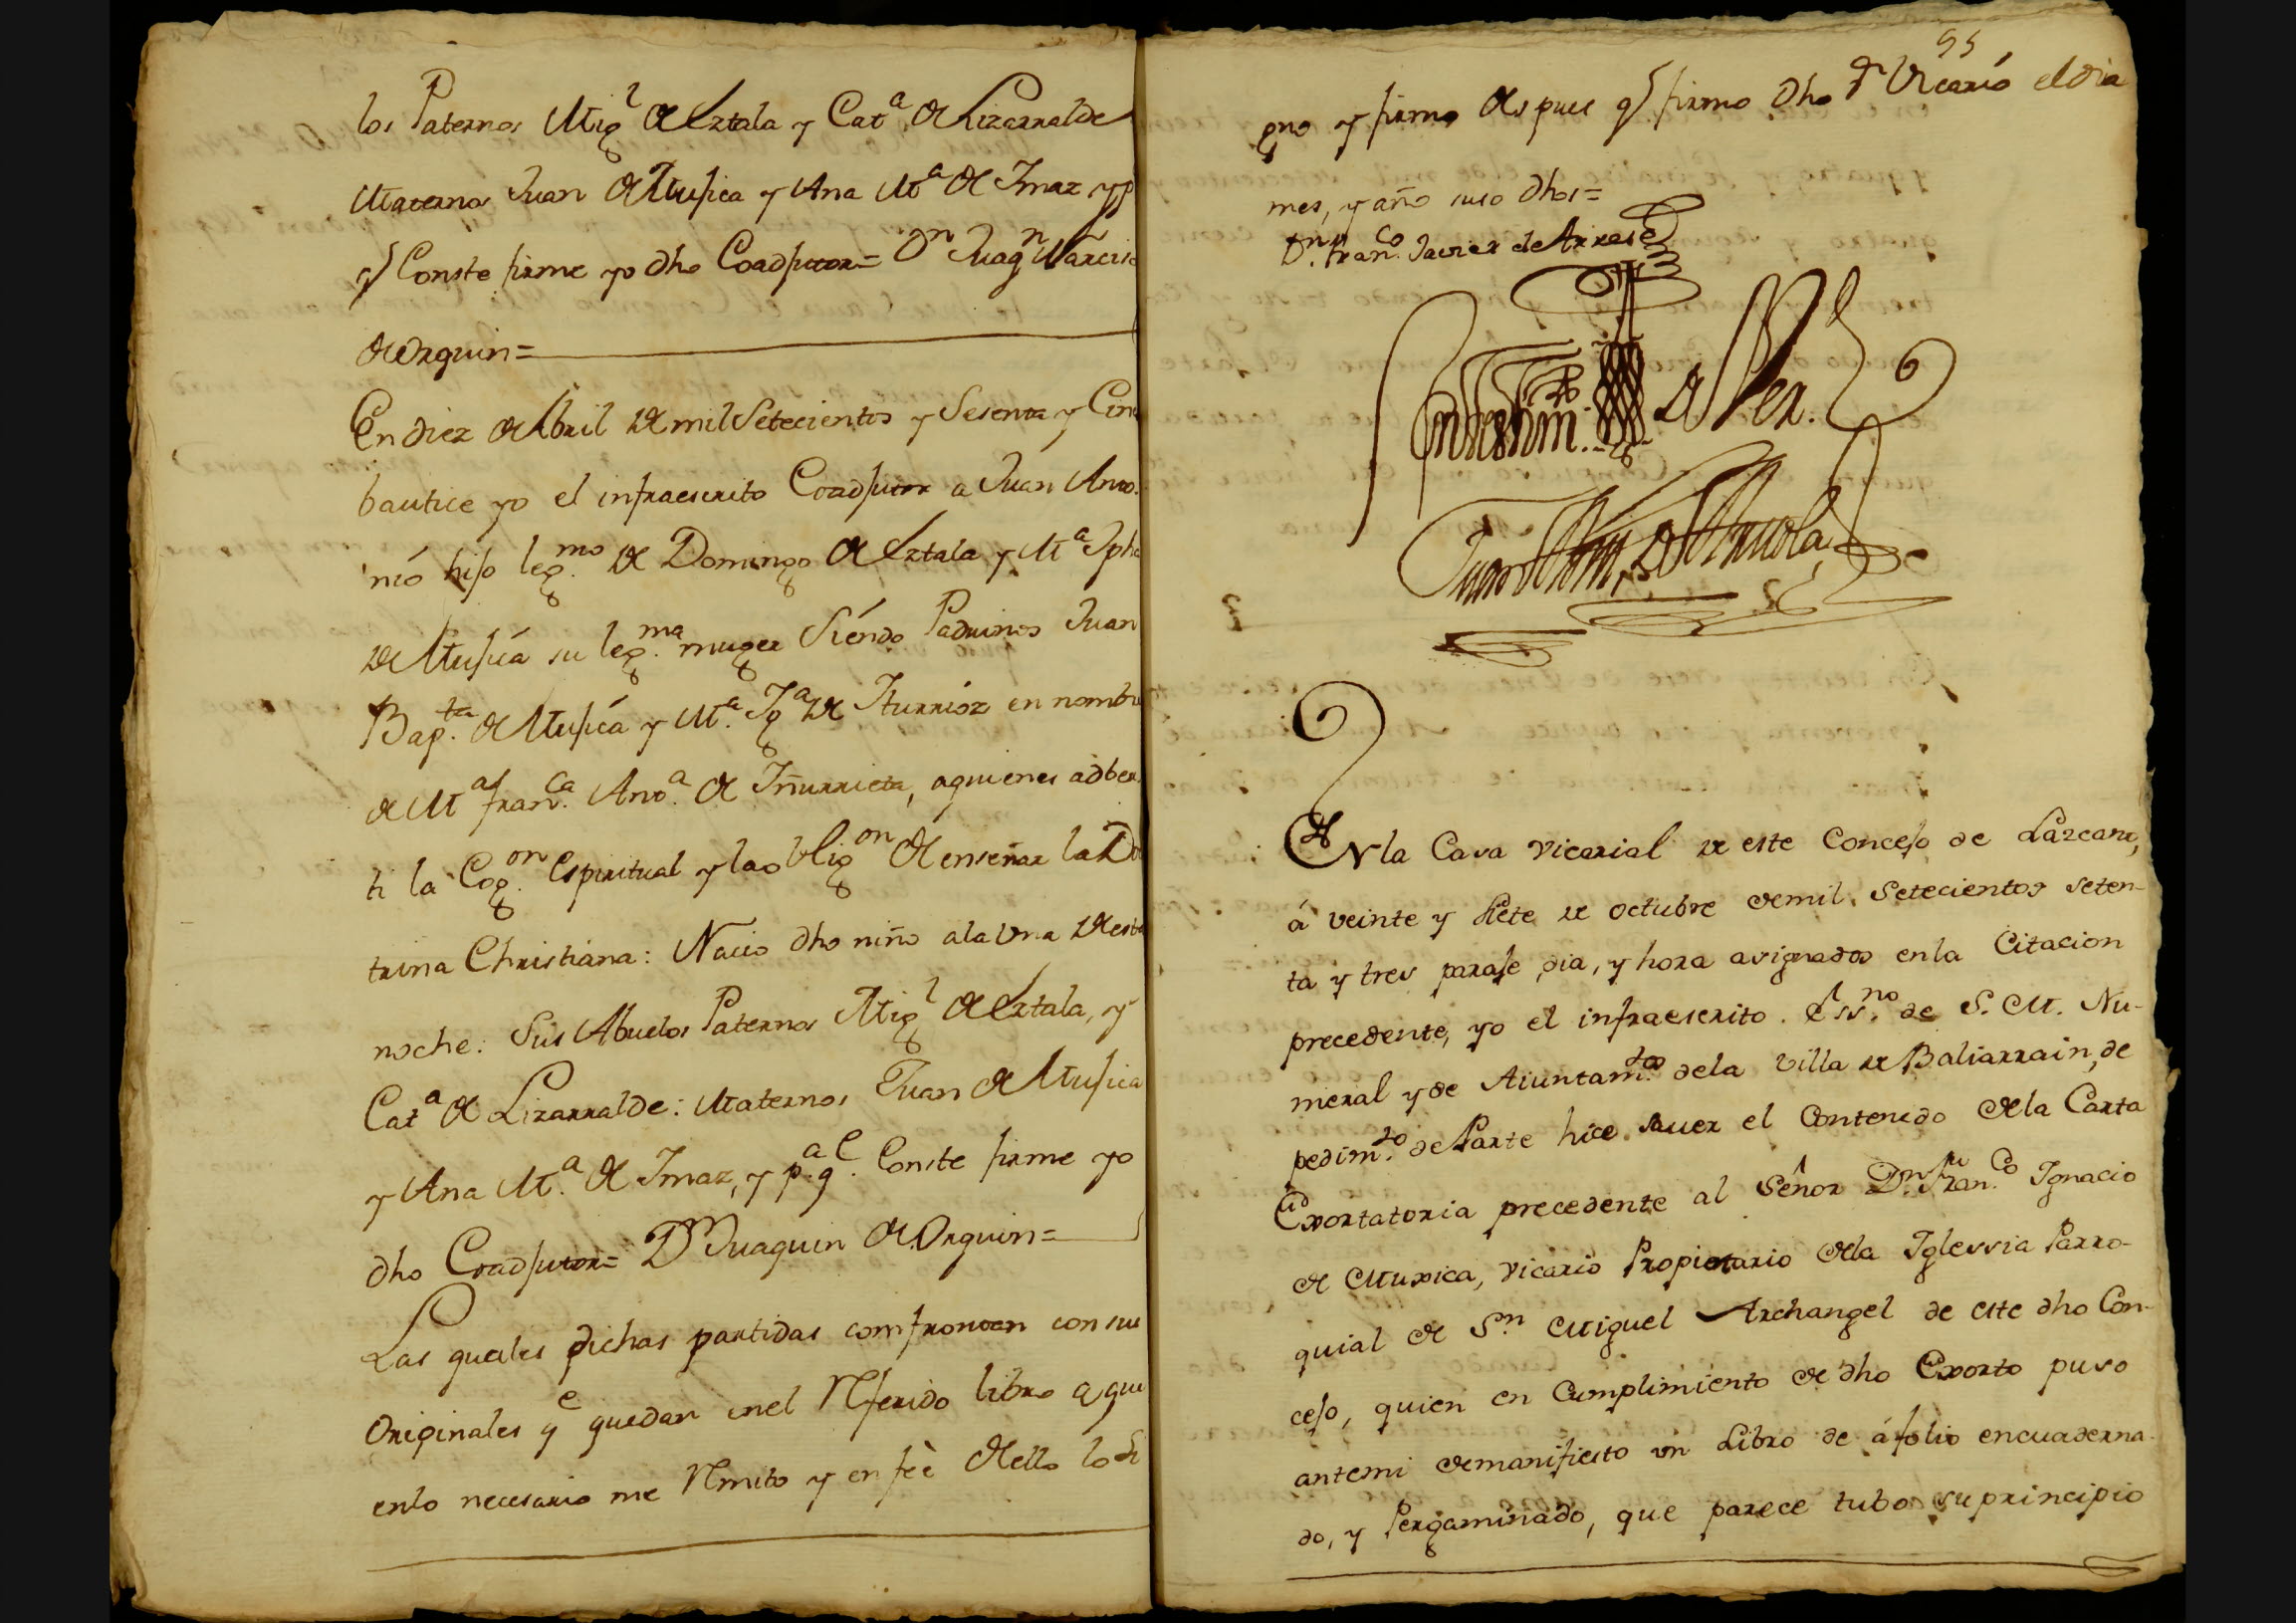 los Paternos Mig.l de Eztala y Cat.a de Lizarralde
Maternos Juan de Mujica y Ana M.a de Imaz, y p
q Conste firme yo dho Coadjutor= Dn Juaqn Narciso
de Orquin=
En diez de Abril de mil Setecientos y Sesenta y Cin
bautice yo el infraescrito Coadjutor a Juan Anto.
nió hijo leg.mo de Domingo de Eztala y M.a Jpha
de Mujica su leg.ma muger Siendo Padrinos Juan
Bap.ta de Mujica y M.a Ig.a de Iturrioz en nombre
de M.a Fran.ca Anto.a de Iñurrieta, aquienes adber
ti la Cog.on Espiritual y la oblig.on de enseñar la Do
trina Christiana: Nacio dho niño ala una de esta
noche: Sus Abuelos Paternos Mig.l de Eztala, y
Cat.a de Lizarralde: Maternos Juan de Mujica
y Ana M.a de Imaz, y p.a q.e Conste firme yo
dho Coadjutor= Dn Juaquin de Orquin=
Las quales dichas partidas comfronten con sus
Originales q.e quedan en el Referido libro a que
en lo necesario me Remito y en feè de ello lo si
95
gno y firmo despues q firmo dho Sr Vicario el dia
mes, y año suso dhos=
D.n Fran.co Javier de Arrese
de Ver.
Juan Ant.o de Arruola
En la Casa Vicarial de este Concejo de Lazcano,
á veinte y siete de octubre de mil Setecientos seten-
ta y tres paraje, dia, y hora asignados en la Citacion
precedente, yo el infraescrito Ess.no de S. M. Nu-
meral y de Aiuntam.to dela Villa de Baliarrain, de
pedim.to de Parte hice sauer el Contenido de la Carta
Exortatoria precedente al Señor D.n Fran.co Ignacio
de Muxica, Vicario Propietario de la Iglessia Parro-
quial de S.n Miguel Archangel de este dho Con-
cejo, quien en Cumplimiento de dho Exorto puso
antemi de manifiesto un Libro de áfolio encuaderna-
do, y Pergaminado, que parece tubo su principio